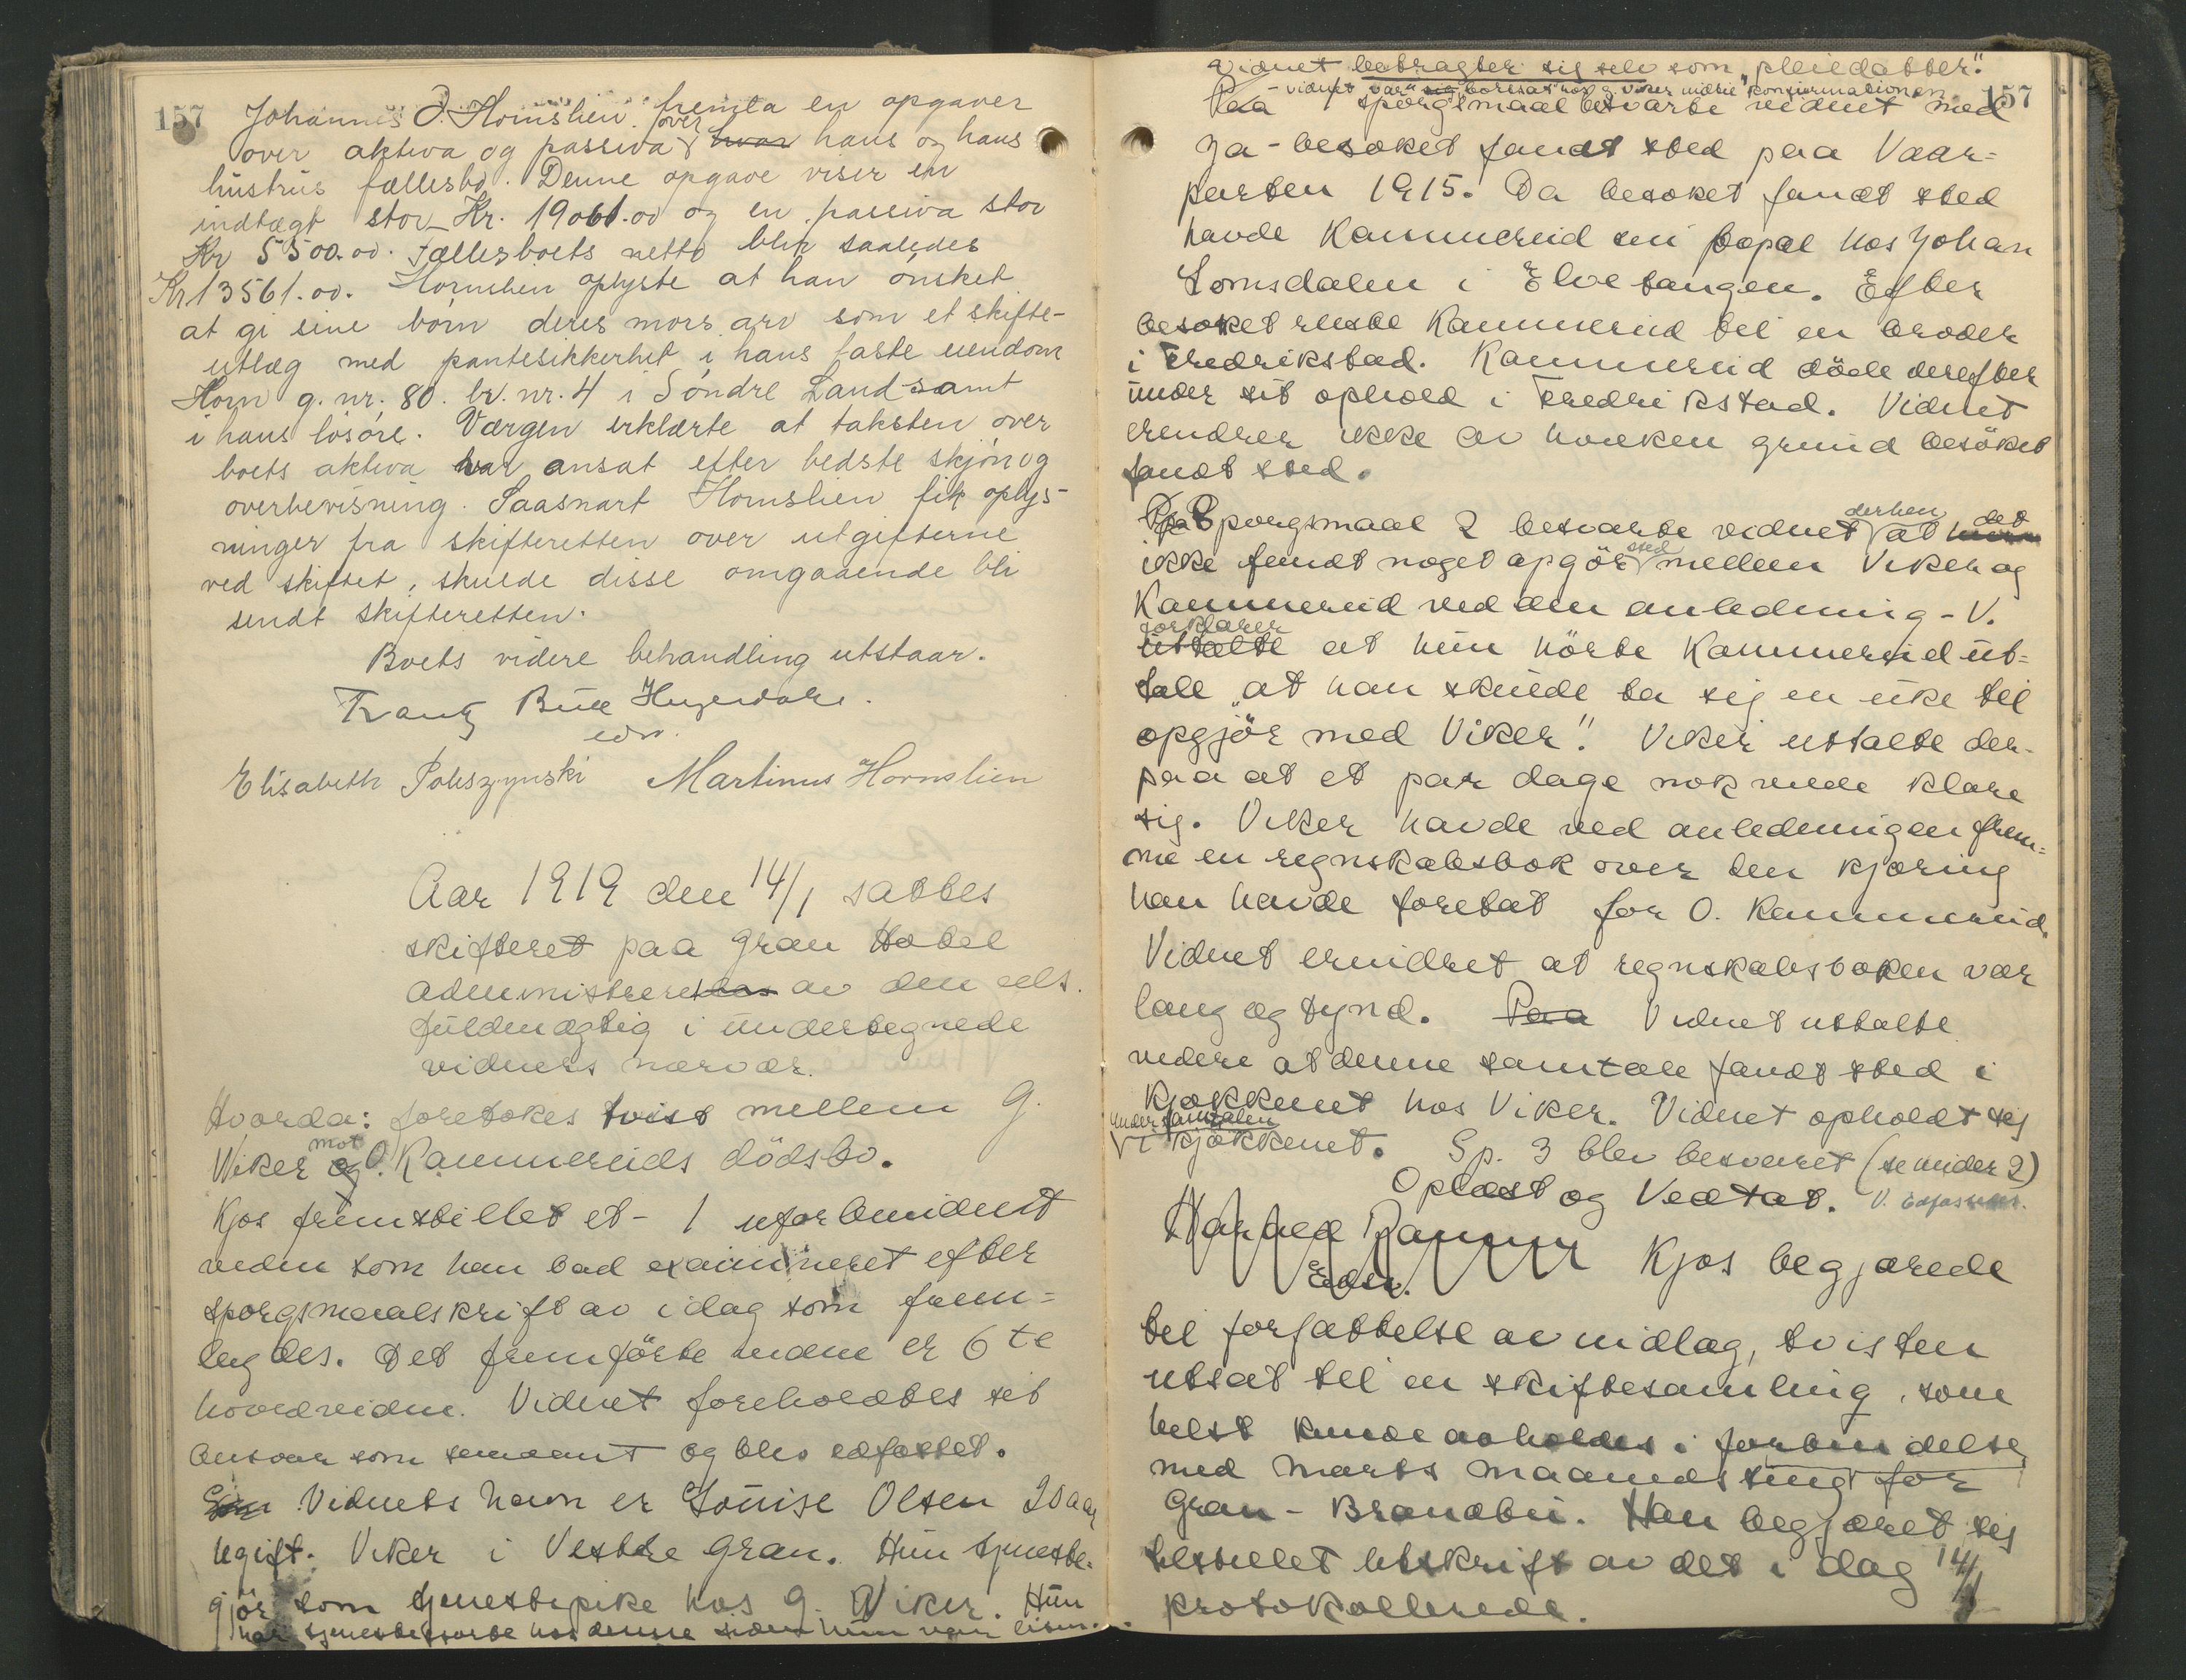 157
Johannes O. Hornslien fremla en opgaver
over aktiva og passiva over hvor hans og hans
hustrus fællesbo. Denne opgave viser en
indtægt stor Kr. 19061.00 og en passiva stor
Kr 5500.00. Fællesboets netto blir saaledes
Kr 13561.00. Hornslien oplyste at han ønsket
at gi sine børn deres mors arv som et skifte-
utlæg med pantesikkerhet i hans faste eiendom
Horn g. nr. 80. br. nr. 4 i Søndre Land samt
i hans løsøre. Værgen erklærte at taksten over
boets aktiva var ansat efter bedste skjøn og
overbevisning. Saasnart Hornslien fik oplys-
ninger fra skifteretten over utgifterne
ved skiftet, skulde disse omgaaende bli
sendt skifteretten.
Boets videre behandling utstaar.
Frantz Bull
edv.
Elisabeth Martinus Hornslien
Aar 1919 den 14/1 sattes
skifteret paa Gran Hotel
administreret av den eds.
fuldmægtig i undertegnede
vidners nærvær.
Hvorda: foretokes tvist mellem G.
Wiker og mot O. Kammeruds dödsbo.
Kjos fremstillet et - 1 uforbenidnt
vidne som han bad examineret efter
spörgsmaalskrift av idag som frem=
legdes. Det fremförte vidne er 6te
hovedvidne. Vidnet foreholdtes sit
ansvar som saadant og blev edfæstet.
Vidnets navn er Louise Olsen 20 aar
ugift. Viker i Vestre Gran. Hun tjeneste-
gjör som tjenestepike hos G. Wiker. Hun
har tjenestegjort hos denne siden hun var liten.
Vidnet betragter sig selv som "pleiedatter".
- vidnet var sig bortsat hos G. Viker indtil konfirmationen
157
Paa spörgsmaal besvarte vidnet med
Ja - besøket fandt sted paa Vaar=
parten 1915. Da besøket fandt sted
havde Kammerud sin bopæl hos Johan
Lomsdalen i Elvetangen. Efter
besøket reiste Kammerud til en broder
i Fredrikstad. Kammerud döde derefter
under sit ophold i Fredrikstad. Vidnet
erindrer ikke av hvilken grund besöket
fandt sted.
Paa Spörgsmaal 2 besvarte vidnet derhen at det
ikke fandt noget opgör sted mellem Viker og
Kammerud ved den anledning - V.
forklarer
uttalte at hun hörte Kammerud ut=
tale "at han skulde ta sig en uke til
opgjör med Viker". Viker uttalte der-
paa at et par dage nok vilde klare
sig. Viker havde ved anledningen frem=
me en regnskabsbok over den kjøring
han havde foretat for O. Kammerud.
Vidnet erindret at regnskabsboken var
lang og tynd. Paa Vidnet uttalte
videre at denne samtale fandt sted i
kjøkkenet hos Viker. Vidnet opholdt sig
under samtalen
i kjøkkenet. Sp. 3 blev besvaret (se under 2)
Oplæst og Vedtat. V.
Kjos begjærede
Edsv.
til forfattelse av indlæg, tvisten
utsat til en skiftesamling, som
helst kunde avholdes i forbindelse
med Marts maaneds ting for
Gran - Brandbu. Han begjæret sig
tilstillet utskrift av det i dag 14/1
protokollerede.